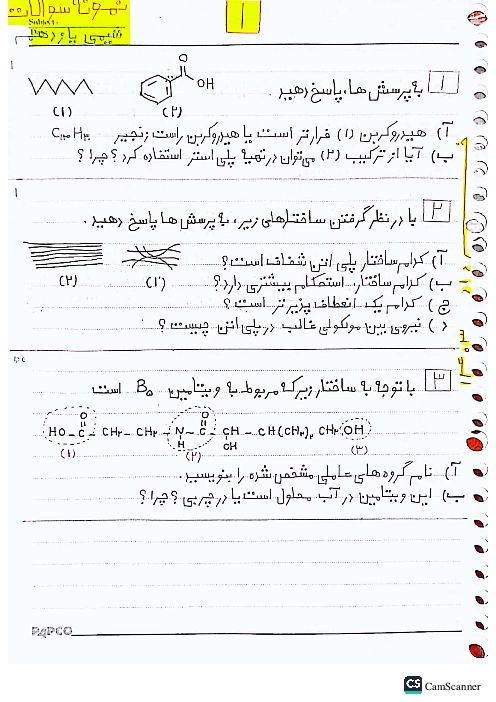 نمونه سوالات
Subject:
شیمی یازدهم
۱
۱
۱ به پرسش ها، پاسخ دهید.
O
OH
(۱) (۲)
آ) هیدروکربن (۱) فرارتر است یا هیدروکربن راست زنجیر
ب) آیا از ترکیب (۲) می‌توان در تهیه پلی استر استفاده کرد؟ چرا؟
۱
۲ با در نظر گرفتن ساختارهای زیر، به پرسش ها پاسخ دهید.
آ) کدام ساختار پلی اتن شفاف است؟
(۲) (۱)
ب) کدام ساختار، استحکام بیشتری دارد؟
ج) کدام یک انعطاف پذیرتر است؟
د) نیروی بین مولکولی غالب در پلی اتن چیست؟
۳ با توجه به ساختار زیر که مربوط به ویتامین B۵ است
O O
HO - C - CH۲ - CH۲ - N - C - CH - CH(CH۳)۲ CH۲OH
H OH
(۱) (۲) (۳)
آ) نام گروه های عاملی مشخص شده را بنویسید.
ب) این ویتامین در آب محلول است یا در چربی؟ چرا؟
PAPCO
CS CamScanner